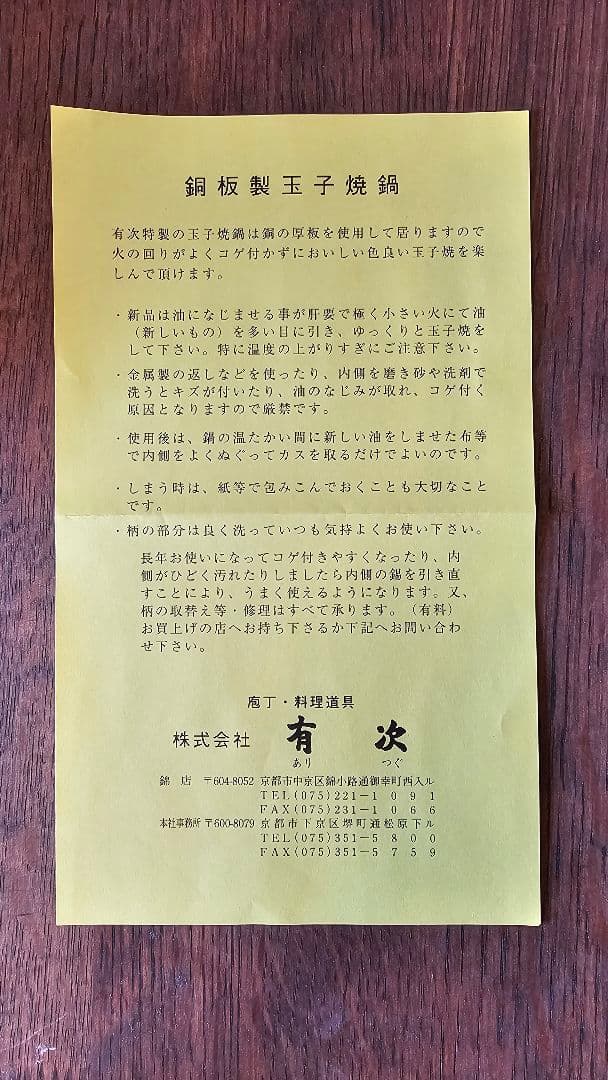 銅板製玉子焼鍋
有次特製の玉子焼鍋は銅の厚板を使用して居りますので
火の回りがよくコゲ付かずにおいしい色良い玉子焼を楽
しんで頂けます。
・新品は油になじませる事が肝要で極く小さい火にて油
（新しいもの）を多い目に引き、ゆっくりと玉子焼を
して下さい。特に温度の上がりすぎにご注意下さい。
・金属製の返しなどを使ったり、内側を磨き砂や洗剤で
洗うとキズが付いたり、油のなじみが取れ、コゲ付く
原因となりますので厳禁です。
・使用後は、鍋の温たかい間に新しい油をしませた布等
で内側をよくぬぐってカスを取るだけでよいのです。
・しまう時は、紙等で包みこんでおくことも大切なこと
です。
・柄の部分は良く洗っていつも気持よくお使い下さい。
長年お使いになってコゲ付きやすくなったり、内
側がひどく汚れたりしましたら内側の錫を引き直
すことにより、うまく使えるようになります。又、
柄の取替え等・修理はすべて承ります。（有料）
お買上げの店へお持ち下さるか下記へお問い合わ
せ下さい。
庖丁・料理道具
株式会社 有次
ありつぐ
錦店 〒604-8052 京都市中京区錦小路通御幸町西入ル
TEL(075)221-1091
FAX(075)231-1066
本社事務所 〒600-8079 京都市下京区堺町通松原下ル
TEL(075)351-5800
FAX(075)351-5759